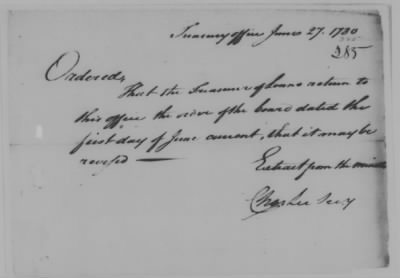 Treasury office June 27. 1780
285
Ordered,
That the Treasurer of loans return to
this office the order of the board dated the
first day of June current, that it may be
revised
Extract from the minutes
Chas Lee Secy